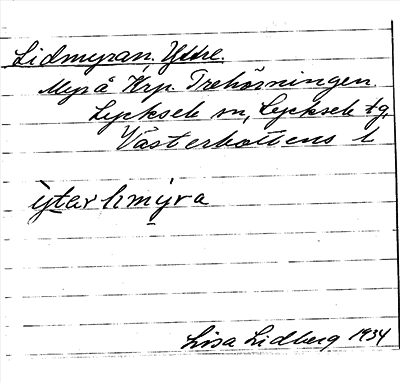 Lidmyran. Yttre.
Myr å Krp. Trehörningen.
Lycksele sn, Lycksele tg.
Västerbottens l
ỳtər hmýra
Lisa Lidberg 1934